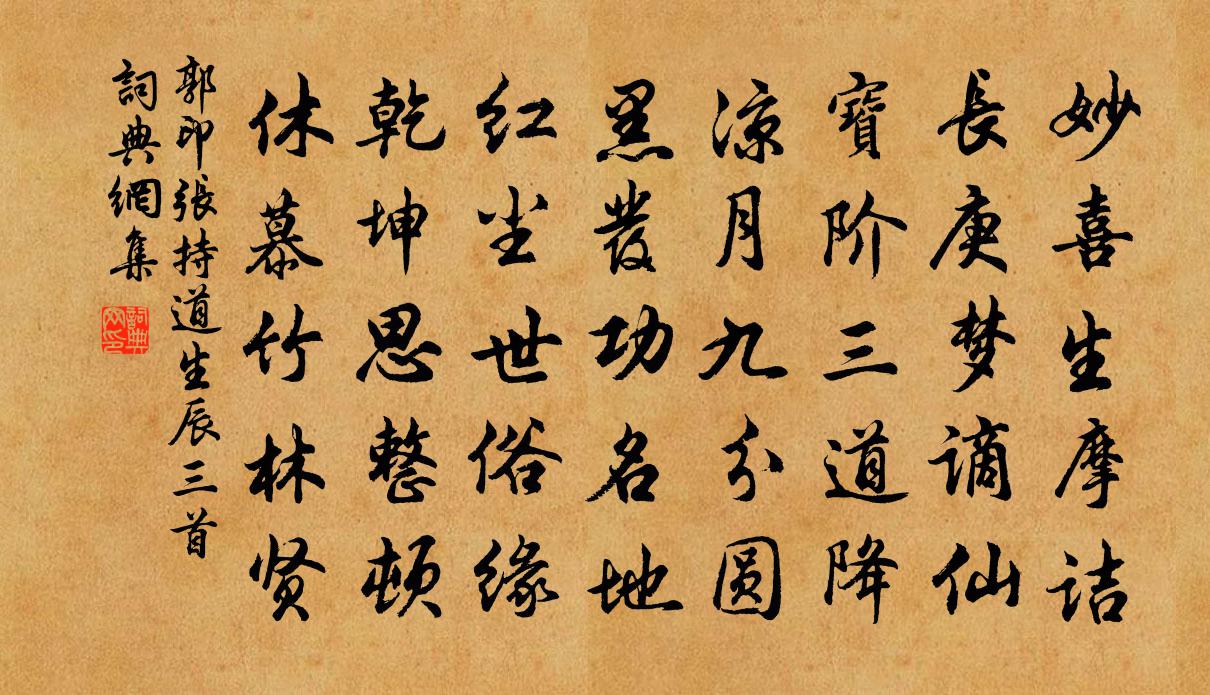 妙喜生摩诘
長庚梦谪仙
寳阶三道降
凉月九分圆
黑发功名地
红尘世俗缘
乾坤思整顿
休慕竹林贤
郭印張持道生辰三首
詞典網集
詞典網印